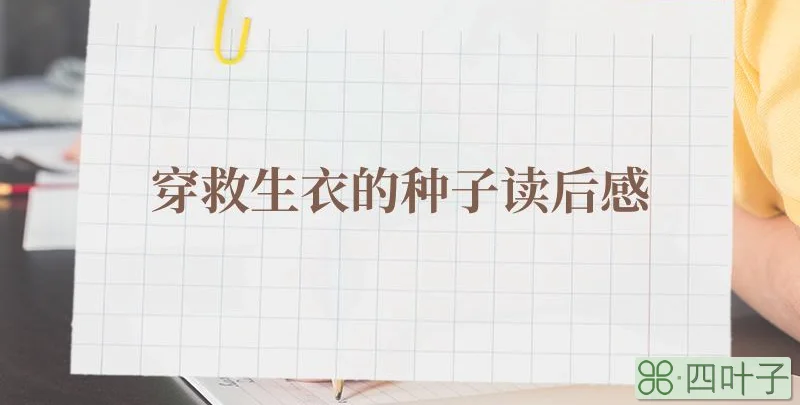 穿救生衣的种子读后感
四叶子